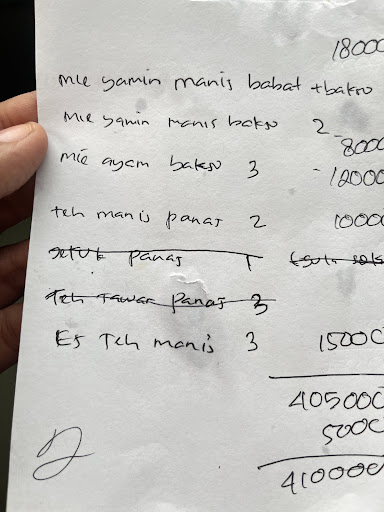 18000
mie yamin manis babat + bakso
mie yamin manis bakso 2
8000
mie ayam bakso 3 - 12000
teh manis panas 2 10000
jeruk panas 1
Teh Tawar panas 3
Es Teh manis 3 15000
405000
5000
410000